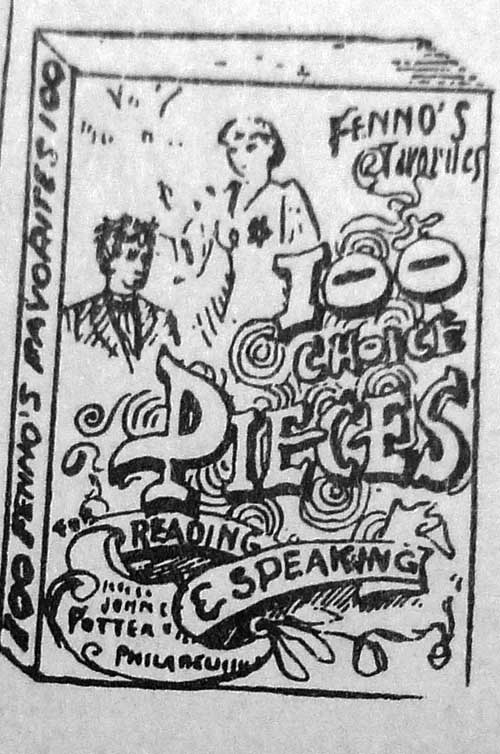 100 FENNO'S FAVORITES 100
FENNO'S
Favorites
100
CHOICE
PIECES
READING
& SPEAKING
JOHN E
POTTER